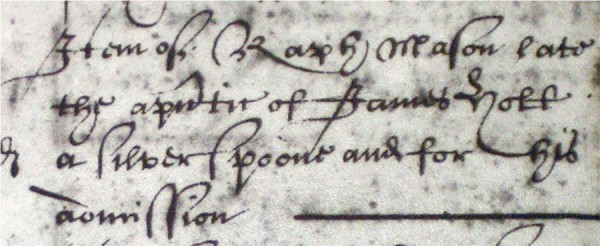 Item of Raph Mason late
the aprntic of James Nott
a silver spoone and for his
admission